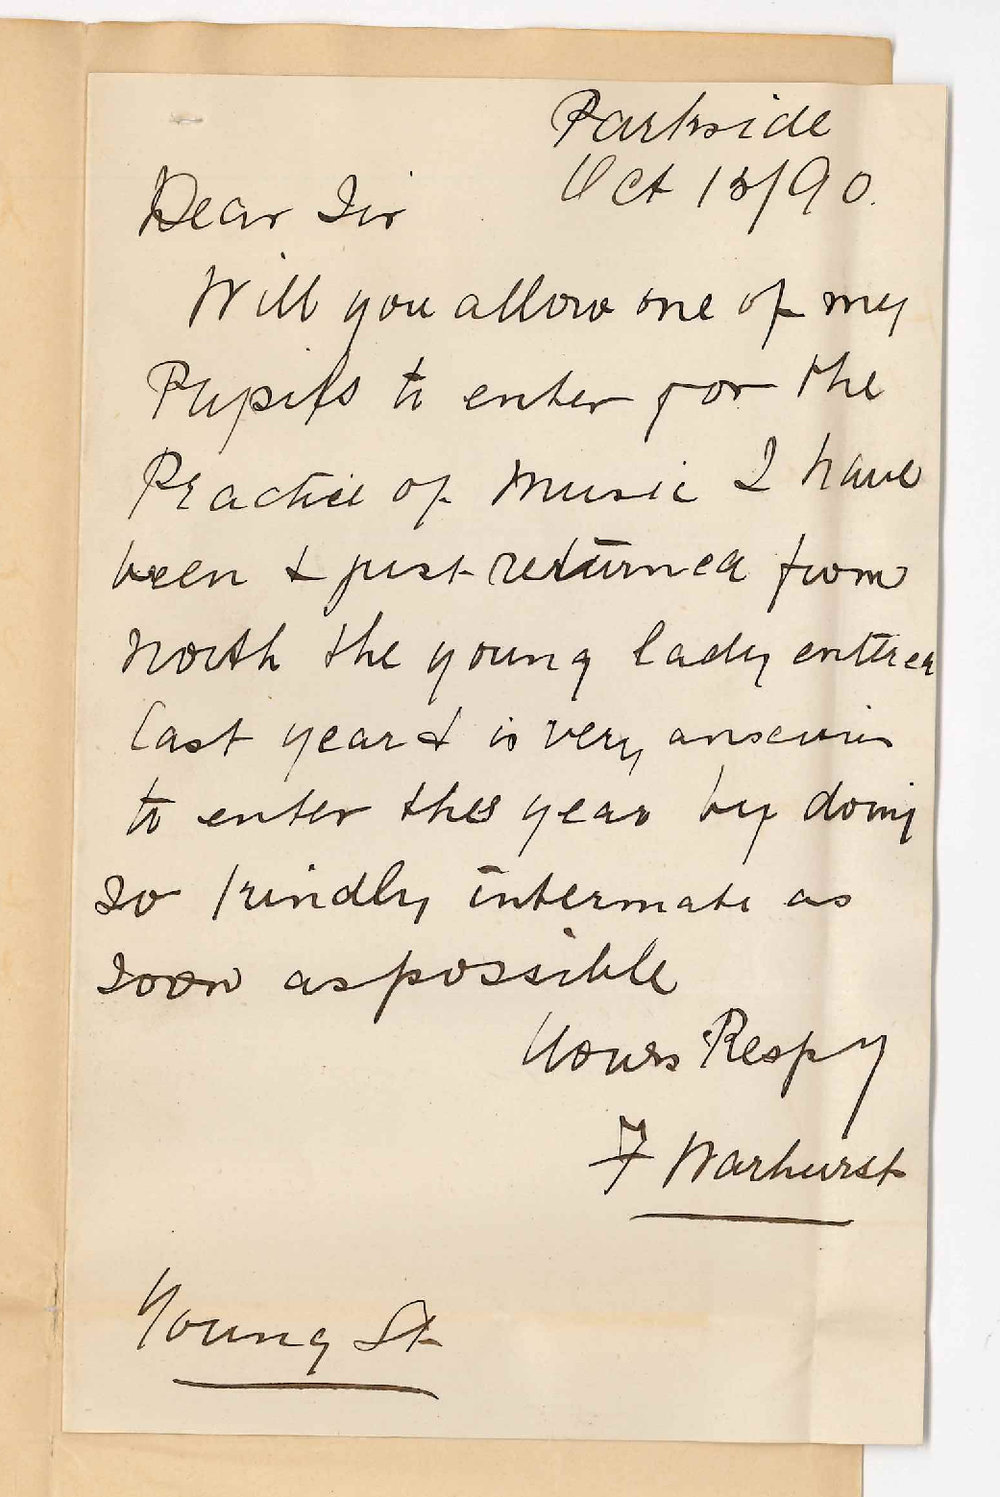 Parkside
Oct 13/90.
Dear Sir
Will you allow one of my
Pupils to enter for the
Practice of Music I have
been & just returned from
North the young lady entered
last year & is very
to enter this year by doing
so kindly intermate as
soon as possible
Yours Respy
F Warhurst
Young St